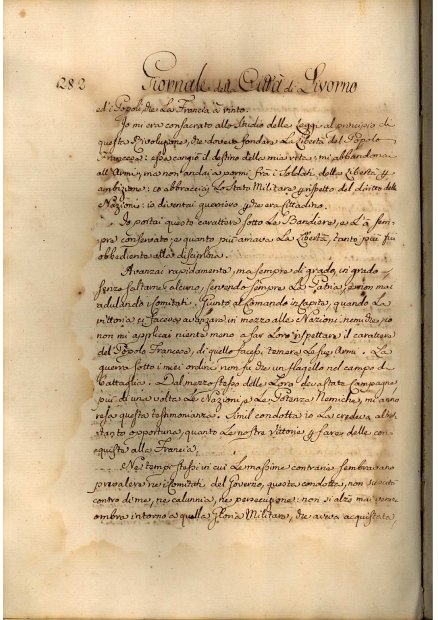 1282 Giornale della Città di Livorno
ed i Popoli, che La Francia à vinto.
Io mi era consacrato allo Studio delle Leggi al principio di
questa Rivoluzione, che doveva fondare La Libertà del Popolo
Francese: essa cangiò il destino della mia vita: mi abbandonai
all'Armi, ma non andai a pormi frà i Soldati della Libertà p
ambizione: io abbracciai Lo Stato Militare p rispetto del diritto delle
Nazioni: io diventai guerriero p che era Cittadino.
Io portai questo carattere sotto Le Bandiere, e L'ò sem-
pre conservato; e quanto più amava La Libertà, tanto più fui
obbediente alla disciplina.
Avanzai rapidamente, ma sempre di grado, in grado
senza saltarne alcuno, servendo sempre La Patria, e non mai
adulando i Comitati. Giunto al Comando in Capite, quando La
vittoria ci faceva avanzare in mezzo alle Nazioni nemiche, io
non mi applicai niente meno a far Loro rispettare il carattere
del Popolo Francese, di quello facessi temere Le sue Armi. La
guerra sotto i miei ordini non fu che un flagello nel campo di
battaglia. Dal mezzo stesso delle Loro devastate Campagne
più di una volta Le Nazioni, e Le Potenze Nemiche, mi anno
resa questa testimonianza. Simil condotta io La credeva al
tanto opportuna, quanto Le nostre Vittorie p fare delle con-
quiste alla Francia.
Ne' tempi stessi in cui Le massime contrarie sembravano
prevalere ne' Comitati del Governo, questa condotta, non suscitò
contro di me, ne calunnia, ne persecuzione: non si alzò mai verun'
ombra intorno a quella Gloria Militare, che aveva acquistata,